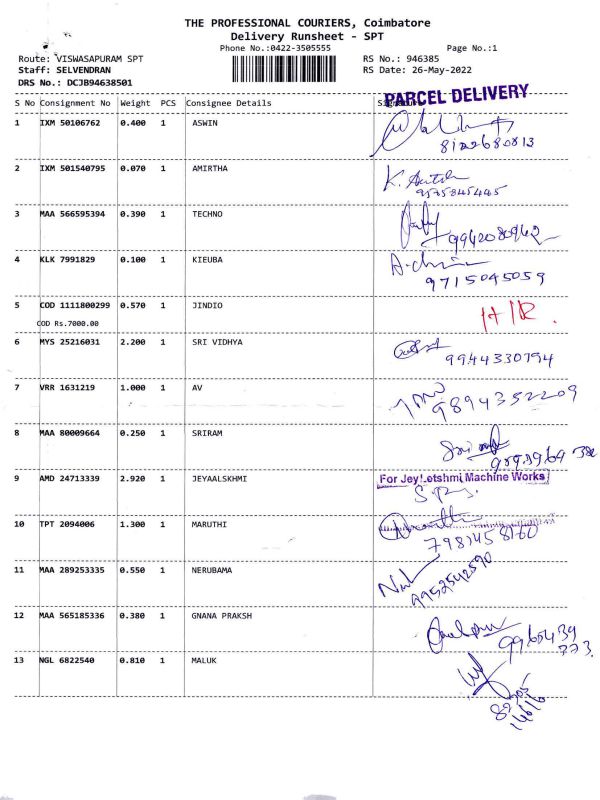 THE PROFESSIONAL COURIERS, Coimbatore
Delivery Runsheet - SPT
Phone No.:0422-3505555
Page No.:1
Route: VISWASAPURAM SPT
RS No.: 946385
Staff: SELVENDRAN
RS Date: 26-May-2022
DRS No.: DCJB94638501
PARCEL DELIVERY
S No Consignment No Weight PCS Consignee Details
1 IXM 50106762 0.400 1 ASWIN
8122680813
2 IXM 501540795 0.070 1 AMIRTHA
K.
9575845445
3 MAA 566595394 0.390 1 TECHNO
9942080942
4 KLK 7991829 0.100 1 KIEUBA
9715045059
5 COD 1111800299 0.570 1 JINDIO
COD Rs.7000.00
6 MYS 25216031 2.200 1 SRI VIDHYA
9944330794
7 VRR 1631219 1.000 1 AV
9894352209
8 MAA 80009664 0.250 1 SRIRAM
9 AMD 24713339 2.920 1 JEYAALSKHMI
For Jey Letshmi Machine Works
10 TPT 2094006 1.300 1 MARUTHI
11 MAA 289253335 0.550 1 NERUBAMA
9952542590
12 MAA 565185336 0.380 1 GNANA PRAKSH
9965439
773.
13 NGL 6822540 0.810 1 MALUK